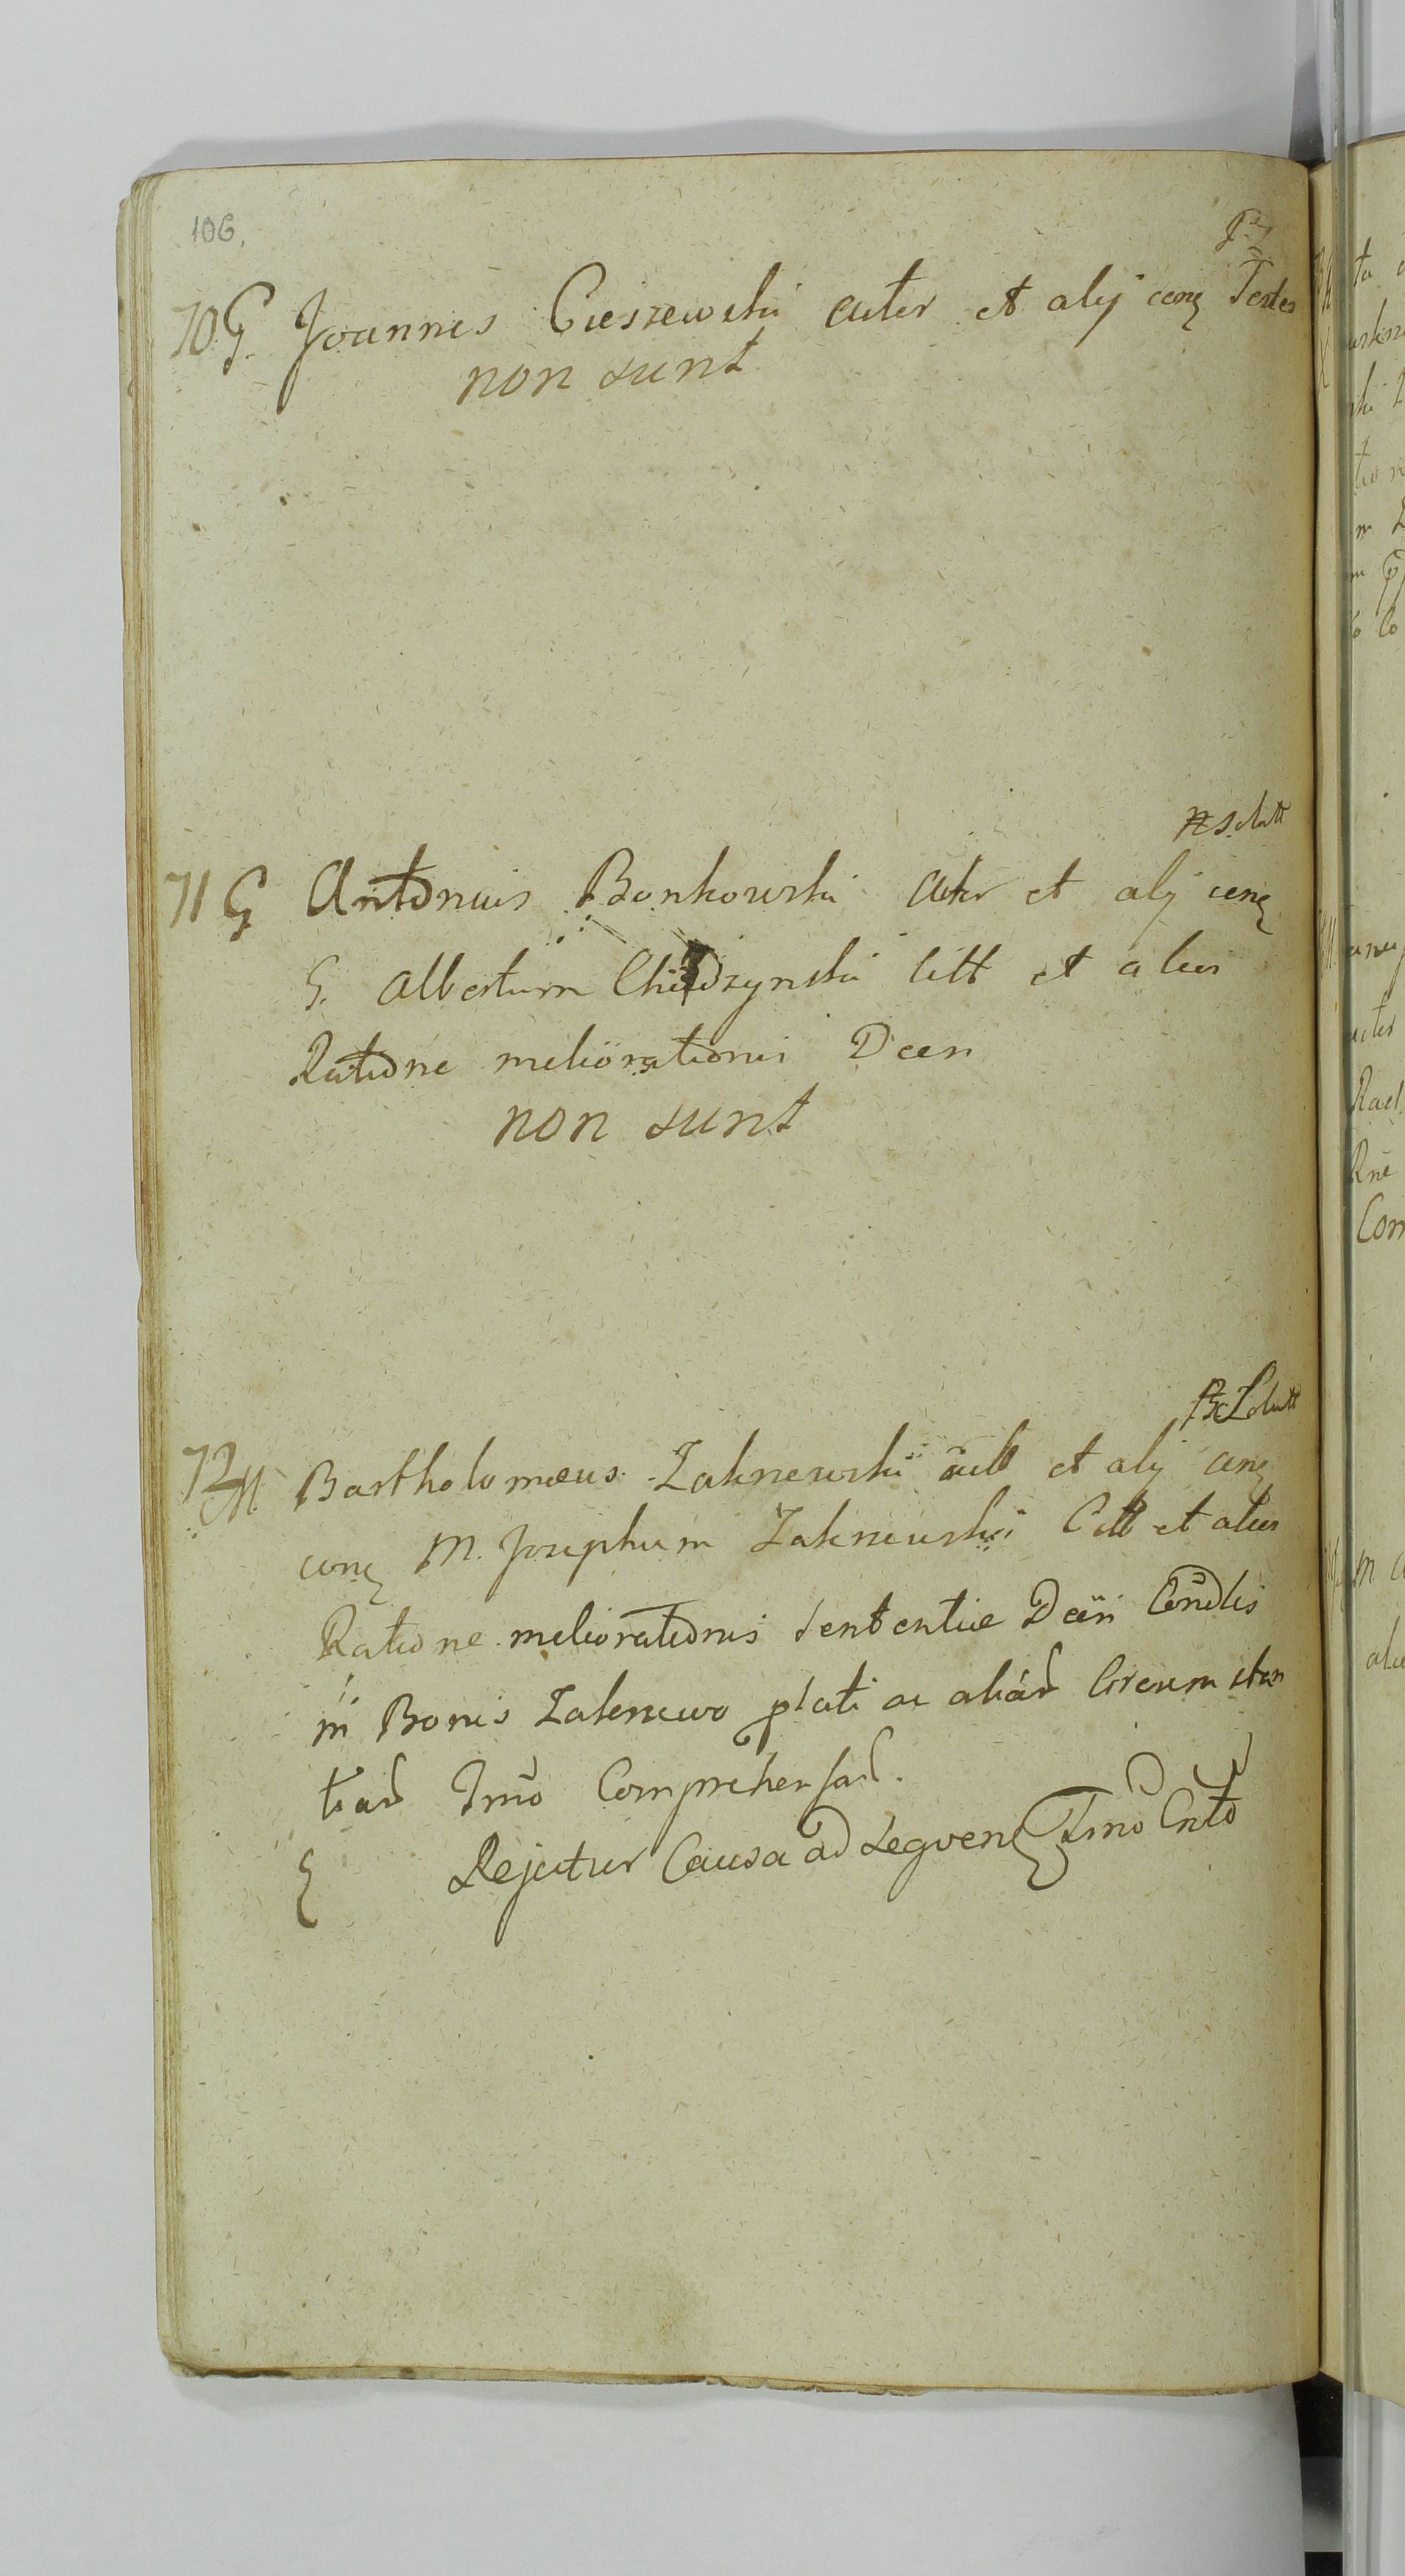 106.
70. G. Joannes Cieszewski Acter et alij conq Testes
non sunt
71 G Antonius Bonkowski Acter et alij conq
G. Albertum Chudzynski Citt et alios
Ratione meliorationis Decr
non sunt
72 M. Bartholomæus Zakrzewski act et alij conq
conq M. Josephum Zakrzewski Citt et alios
Ratione meliorationis sententiæ Decri Condlis
in Bonis Zakrzewo plati ac aliar Circumstan
tiar Tmno Comprehensar.
Rejcitur Causa ad seqven Tmno Cnto